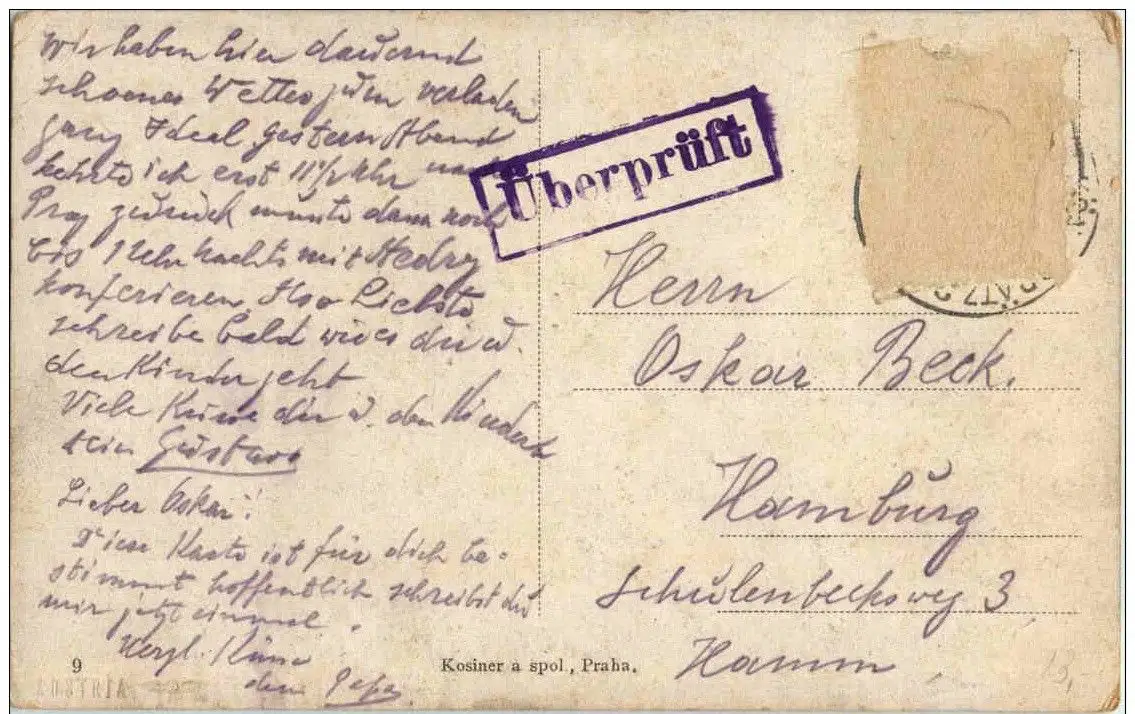 Wir haben hier dauernd
schoenes Wetter zum verladen
ganz Ideal gestern Abend
kehrte ich erst 11½ Uhr nach
Prag zurück musste dann noch
bis 1 Uhr nachts mit
konferieren Also Liebste
schreibe bald wie es dir u.
den Kinder geht
Viele Küsse dir u. den Kindern
dein Gustav
Lieber Oskar!
Diese Karte ist für dich be-
stimmt hoffentlich schreibst du
mir jetzt einmal.
Herzl. Küsse
dein Papa
9
Kosiner a spol., Praha.
Überprüft
Herrn
Oskar Beck.
Hamburg
Schulenbecksweg 3
Hamm
13.